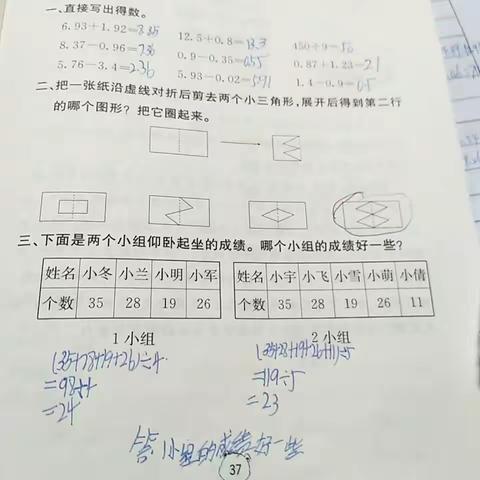 一、直接写出得数。
6.93+1.92=8.85 12.5+0.8=13.3 450÷9=50
8.37-0.96=7.36 0.9-0.35=0.55 0.87+1.23=2.1
5.76-3.4=2.36 5.93-0.02=5.91 1.4-0.9=0.5
二、把一张纸沿虚线对折后剪去两个小三角形,展开后得到第二行
的哪个图形?把它圈起来。
三、下面是两个小组仰卧起坐的成绩。哪个小组的成绩好一些?
姓名 小冬 小兰 小明 小军
个数 35 28 19 26
姓名 小宇 小飞 小雪 小萌 小倩
个数 35 28 19 26 11
1小组 2小组
(35+28+19+26)÷4
=98÷4
=24
(35+28+19+26+11)÷5
=119÷5
=23
答:1小组的成绩好一些
37